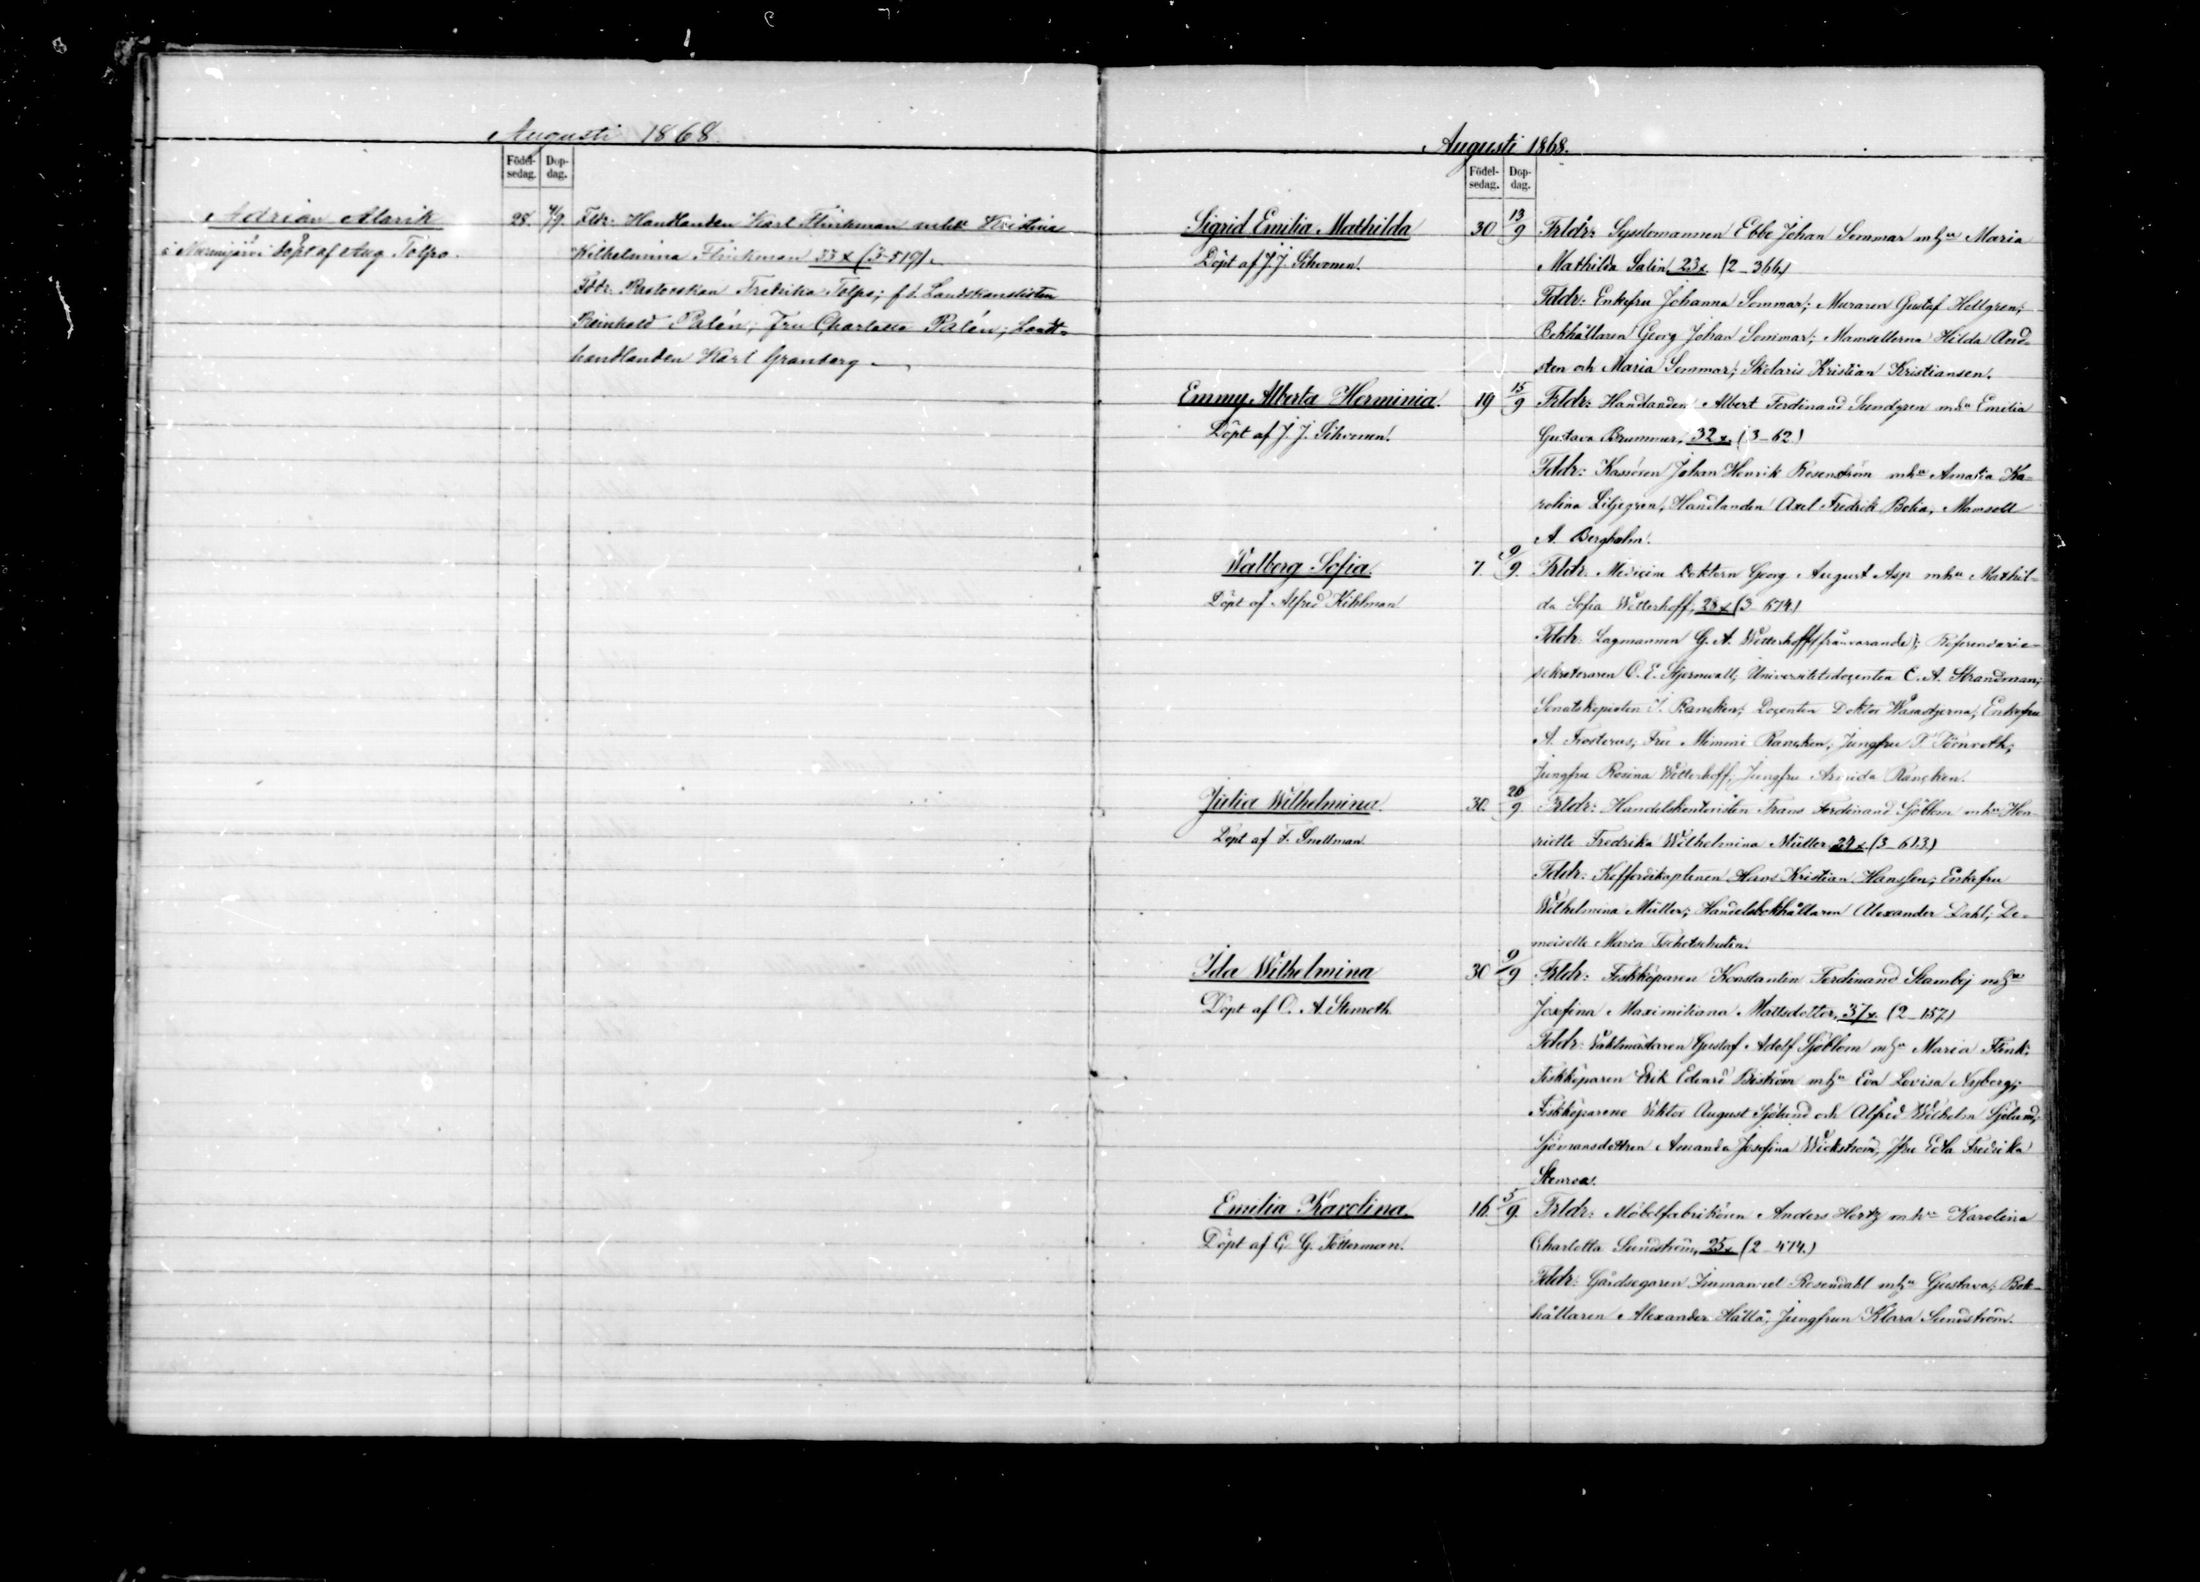 Augusti 1868.
Födel-
sedag.
Dop-
dag.
Adrian Alarik
i Nurmijärvi döpt af Aug. Tolpo.
28. 4/9. Fldr: Handlanden Karl Flinkman mhu Kristina
Wilhelmina Flinkman 33 x (3-519).
Fddr: Pastorskan Fredrika Tolpo; f.d. Landskanslisten
Reinhold Palén; Fru Charlotta Palén; Landt-
handlanden Karl Granberg.
Augusti 1868.
Födel-
sedag.
Dop-
dag.
Sigrid Emilia Mathilda
Döpt af J. J. Sihvonen.
30 13/9 Frldr: Sysslomannen Ebbe Johan Sommar mhu Maria
Mathilda Salin, 23 x. (2-366)
Fddr: Enkefru Johanna Sommar; Muraren Gustaf Hellgren;
Bokhållaren Georg Johan Sommar; Mamsellerna Hilda And-
sten och Maria Sommar; Skolaris Kristian Kristiansen.
Emmy Alberta Herminia.
Döpt af J. J. Sihvonen.
19 15/9 Frldr: Handlanden Albert Ferdinand Sundgren mhu Emilia
Gustava Brummer, 32 x. (3-62)
Fddr: Kassören Johan Henrik Rosenström mhu Amalia Ka-
rolina Liljegren; Handlanden Axel Fredrik Bolia; Mamsell
A. Bergholm.
Walborg Sofia.
Döpt af Alfred Kihlman
7. 9/9. Frldr. Medicine Doktorn Georg August Asp mhu Mathil-
da Sofia Wetterhoff, 28 x (3-674)
Fddr: Lagmannen G. A. Wetterhoff (frånvarande); Referendarie-
sekreteraren O. E. Stjernvall; Universitetsdocenten C. A. Strandman;
Senatskopisten J. Rancken; Docenten Doktor Wasastjerna; Enkefru
A. Frosterus; Fru Mimmi Rancken; Jungfru Törnroth;
Jungfru Rosina Wetterhoff; Jungfru Armida Rancken.
Julia Wilhelmina.
Döpt af F. Snellman
30. 26/9. Frldr: Handelskontoristen Frans Ferdinand Sjöblom mhu Hen-
riette Fredrika Wilhelmina Müller 29 x. (3-613)
Fddr: Kofferdikaptenen Hans Kristian Hanssen; Enkefru
Wilhelmina Müller; Handelsbokhållaren Alexander Dahl; De-
moiselle Maria Tschetschulin.
Ida Wilhelmina
Döpt af O. A. Stenroth
30 9/9 Frldr: Fiskköparen Konstantin Ferdinand Stambej mhu
Josefina Maximiliana Mattsdotter, 37 x. (2-157)
Fddr: Vaktmästaren Gustaf Adolf Sjöblom mhu Maria Flink;
Fiskköparen Erik Edvard Biström mhu Eva Lovisa Nyberg;
Fiskköparene Viktor August Sjölund och Alfred Wilhelm Sjölund;
Sjömansdottren Amanda Josefina Wickström, Jfru Edla Fredrika
Stenroos.
Emilia Karolina.
Döpt af G. Totterman.
16. 5/9. Frldr: Möbelfabrikören Anders Hertz mhu Karolina
Charlotta Sundström, 25 x (2-474.)
Fddr: Gårdsegaren Immanuel Rosendahl mhu Gustava; Bok-
hållaren Alexander Hättä; Jungfrun Klara Sundström.